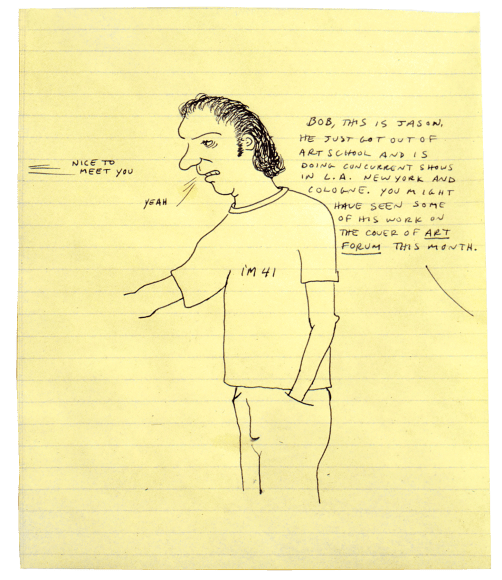 BOB, THIS IS JASON.
HE JUST GOT OUT OF
ART SCHOOL AND IS
DOING CONCURRENT SHOWS
IN L.A. NEW YORK AND
COLOGNE. YOU MIGHT
HAVE SEEN SOME
OF HIS WORK ON
THE COVER OF ART
FORUM THIS MONTH.
NICE TO
MEET YOU
YEAH
I'M 41